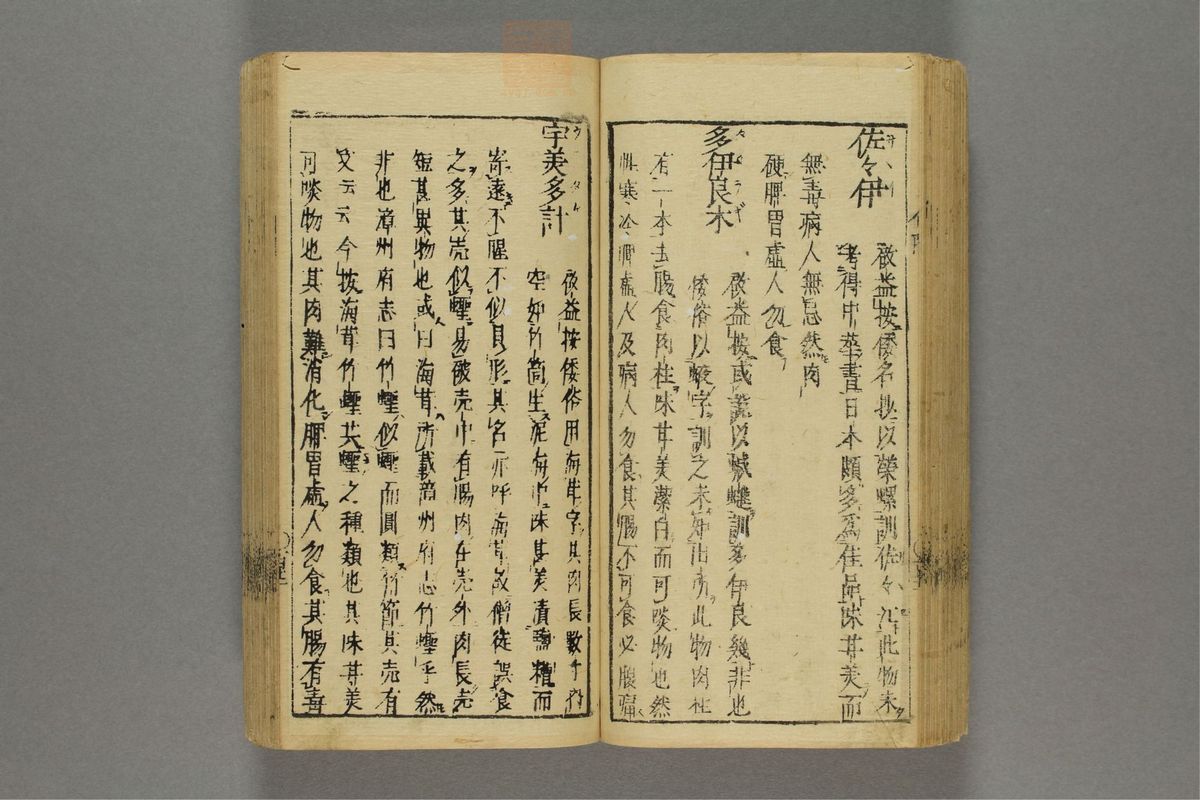 佐々伊
啓益按倭名抄以榮螺訓佐々江此物未
考得中華書日本頗多爲佳品味甘美而
無毒病人無忌然肉
硬脾胃虛人勿食
多伊良木
啓益按或説以蚶訓多伊良幾非也
倭俗以蛟字訓之未知出處此物肉柱
有一本去腸食肉柱味甘美潔白而可啖物也然
性寒冷脾虛人及病人勿食其腸不可食必腹痛
宇美多計
啓益按倭俗用海茸字其肉長數寸
空如竹筒生泥海中味甚美漬糟而
寄遠不腥不似貝形其名亦呼海茸故僧徒誤食
之多其売似蟶易破売中有腸肉在売外肉長売
短甚異物也或曰海茸所載州府志竹蟶乎然
非也漳州府志曰竹蟶似蟶而圓類竹節其売有
文云云今按海茸竹蟶共蟶之種類也其味甘美
可啖物也其肉難消化脾胃虛人勿食其腸有毒